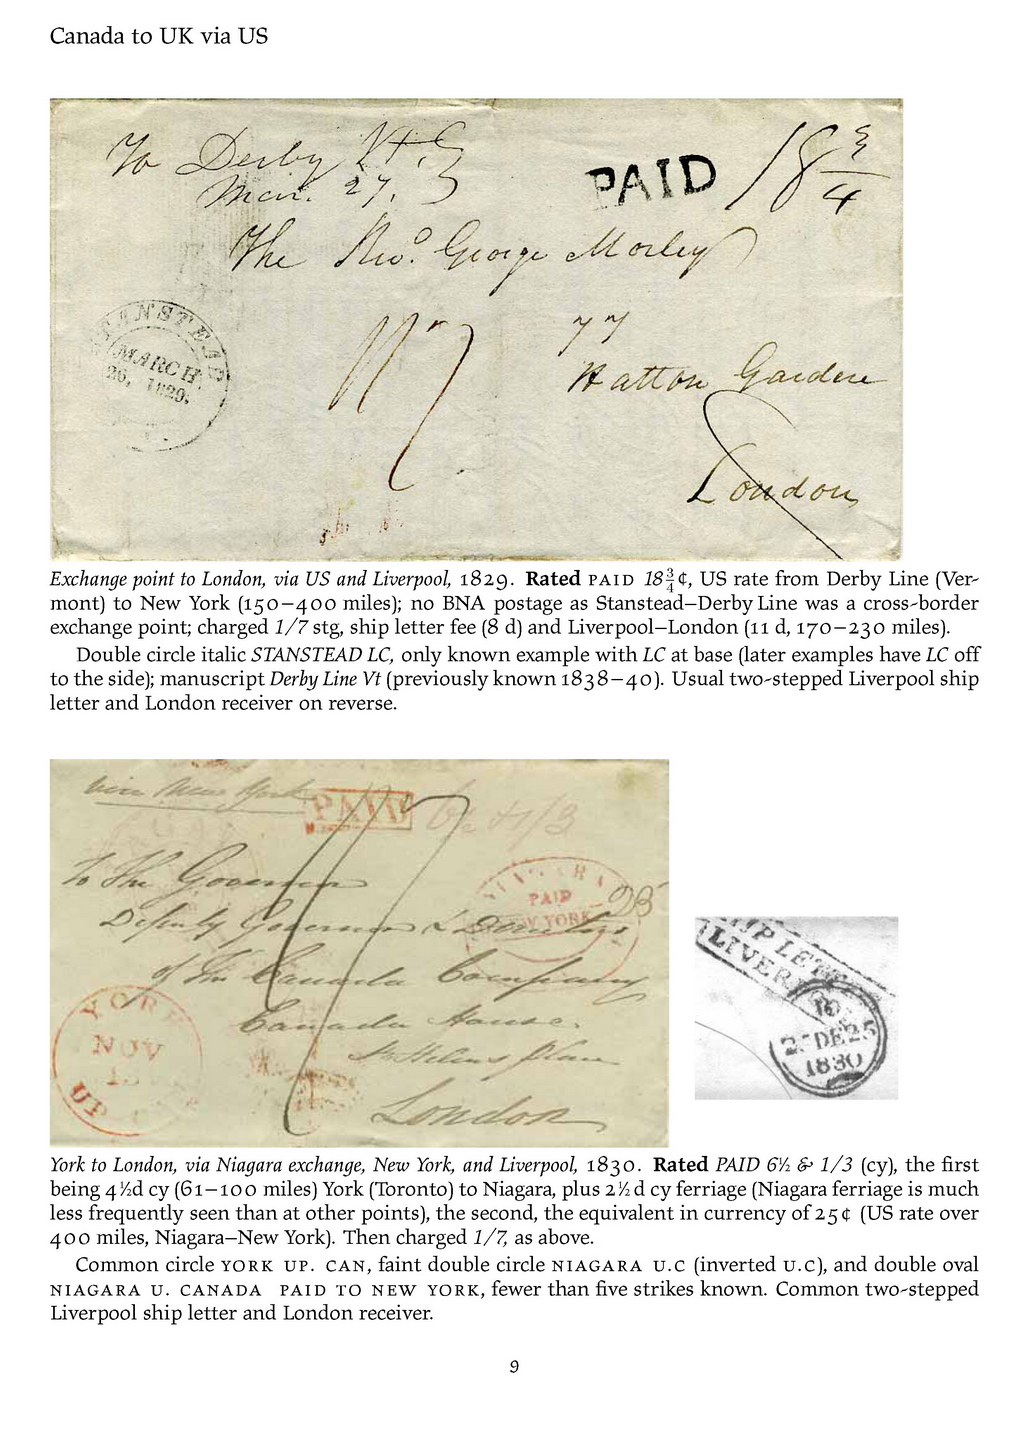 Canada to UK via US
To Derby Vt.
Mar. 27.
PAID 18 3/4
The Revd. George Morley
77
Hatton Garden
London
STANSTEAD
MARCH
26, 1829.
Exchange point to London, via US and Liverpool, 1829. Rated PAID 18¾¢, US rate from Derby Line (Ver-
mont) to New York (150–400 miles); no BNA postage as Stanstead–Derby Line was a cross-border
exchange point; charged 1/7 stg, ship letter fee (8 d) and Liverpool–London (11 d, 170–230 miles).
Double circle italic STANSTEAD LC, only known example with LC at base (later examples have LC off
to the side); manuscript Derby Line Vt (previously known 1838–40). Usual two-stepped Liverpool ship
letter and London receiver on reverse.
via New York
PAID 6½ + 1/3
To The Governor
Deputy Governor & Directors
of The Canada Company
Canada House
St Helens Place
London
NIAGARA
PAID
NEW YORK
YORK
NOV
UP
SHIP LETTER
LIVER
10
DE 25
1830
York to London, via Niagara exchange, New York, and Liverpool, 1830. Rated PAID 6½ & 1/3 (cy), the first
being 4½d cy (61–100 miles) York (Toronto) to Niagara, plus 2½d cy ferriage (Niagara ferriage is much
less frequently seen than at other points), the second, the equivalent in currency of 25¢ (US rate over
400 miles, Niagara–New York). Then charged 1/7, as above.
Common circle YORK UP. CAN, faint double circle NIAGARA U.C (inverted U.C), and double oval
NIAGARA U. CANADA PAID TO NEW YORK, fewer than five strikes known. Common two-stepped
Liverpool ship letter and London receiver.
9